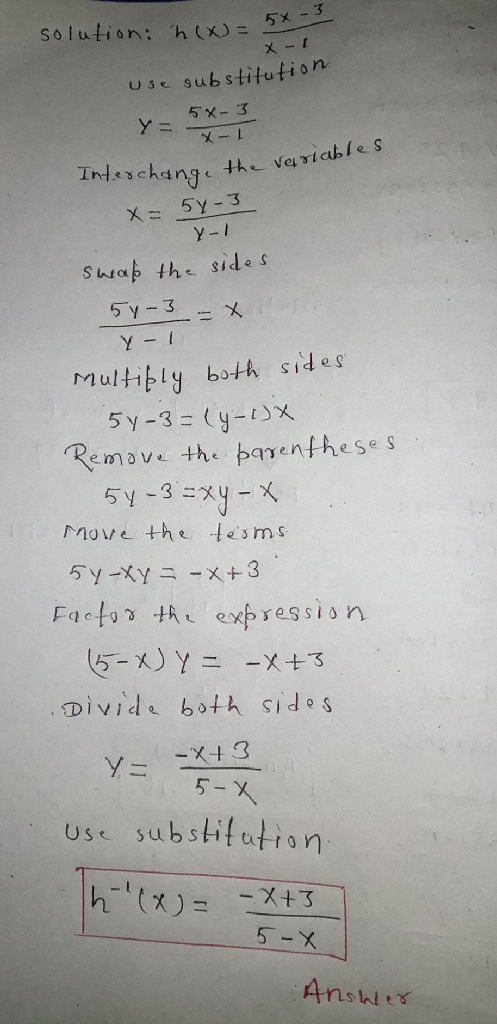 solution: h(x) = 5x-3 / x-1
use substitution
y = 5x-3 / x-1
Interchange the variables
x = 5y-3 / y-1
swap the sides
5y-3 / y-1 = x
Multiply both sides
5y-3 = (y-1)x
Remove the parentheses
5y-3 = xy-x
Move the terms
5y-xy = -x+3
Factor the expression
(5-x) y = -x+3
Divide both sides
y = -x+3 / 5-x
use substitution
h⁻¹(x) = -x+3 / 5-x
Answer